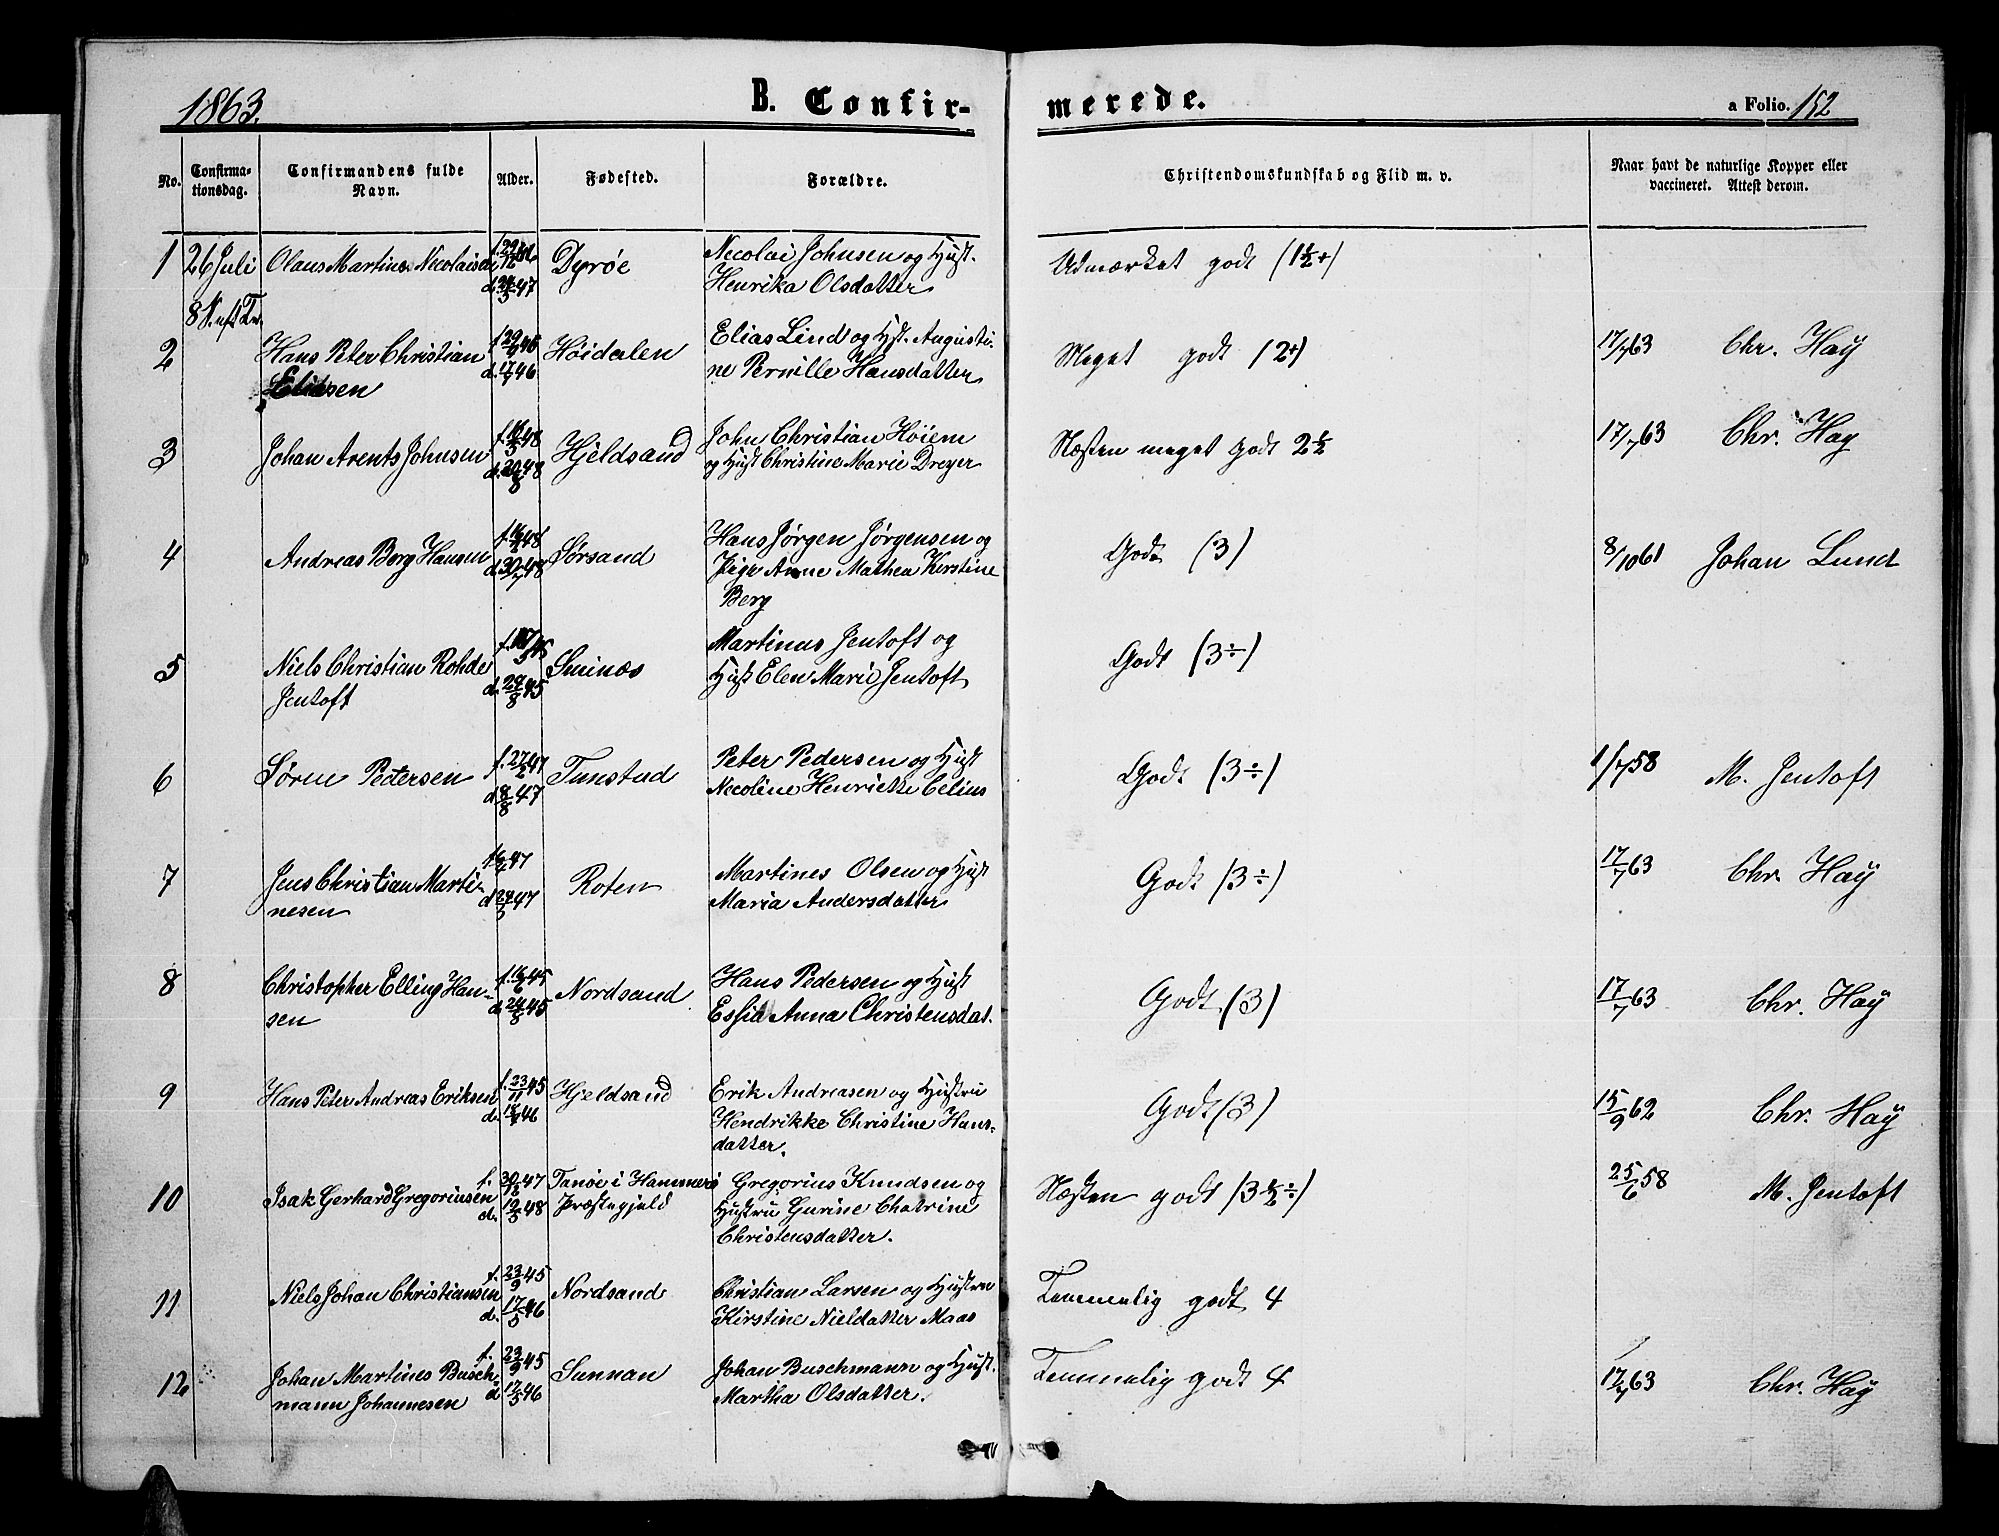 1863.
B. Confir-
merede.
a Folio. 152
No.
Confirma-
tionsdag.
Confirmandens fulde
Navn.
Alder.
Fødested.
Forældre.
Christendomskundskab og Flid m. v.
Naar havt de naturlige Kopper eller
vaccineret. Attest derom.
1 26 Juli Olaus Martinus Nicolaisen Dyrøe Necolai Johnsen og Hust. Udmærket godt (1½+)
8 S. eft Tr. Henrika Olsdatter
2 Hans Peter Christian f. 29/9 45 Høidalen Elias Lind og Hst. Augusti- Meget godt (2+) 17/7 63 Chr. Hay
Eliasen d. 17/ 46 ne Pernille Hansdatter
3 Johan Arents Johnsen 48 Hjeldsand John Christian Høiem Næsten meget godt 2½ 17/7 63 Chr. Hay
d. 20/8 48 og Hust Christine Marie Dreyer
4 Andreas Berg Hansen 48 Sørsand Hans Jørgen Jørgensen og Godt (3) 8/10 61 Johan Lund
d. 30/7 48 Pige Anne Mathea Kerstine
Berg
5 Niels Christian Rohde 45 Sninæs Martinus Jentoft og Godt (3÷)
Jentoft d. 27/8 45 Hust Elen Marie Jentoft
6 Søren Pedersen f. 27/2 47 Tunstad Peter Pedersen og Hust Godt (3÷) 1/7 58 M. Jentoft
d. 8/8 47 Necoline Henriette Celius
7 Jens Christian Marti- 47 Roten Martines Olsen og Hust Godt (3÷) 17/7 63 Chr. Hay
nesen d. 24/5 47 Maria Andersdatter
8 Christopher Elling Han- f. 16/6 45 Nordsand Hans Pedersen og Hust Godt (3) 17/7 63 Chr. Hay
sen d. 24/8 45 Essia Anna Christensdat.
9 Hans Peter Andreas Eriksen f. 23/11 45 Hjeldsand Erik Andreasen og Hustru Godt (3) 15/9 62 Chr. Hay
d. 46 Hendrikke Christine Hans-
datter.
10 Isak Gerhard Gregoriusen f. 30/ 47 Tanøe i Hammerø Gregorius Knudsen og Næsten godt (3½÷) 25/6 58 M. Jentoft
d. 12/3 48 Præstegjeld Hustru Gurine Chatrine
Christensdatter.
11 Niels Johan Christiansen f. 23/9 45 Nordsand Christian Larsen og Hustru Temmelig godt 4
d. 17/5 46 Kirstine Nieldatter Maas
12 Johan Martines Busch- f. 23/9 45 Sunnan Johan Buschmann og Hust. Temmelig godt 4 17/7 63 Chr. Hay
mann Johannesen d. 17/5 46 Martha Olsdatter.